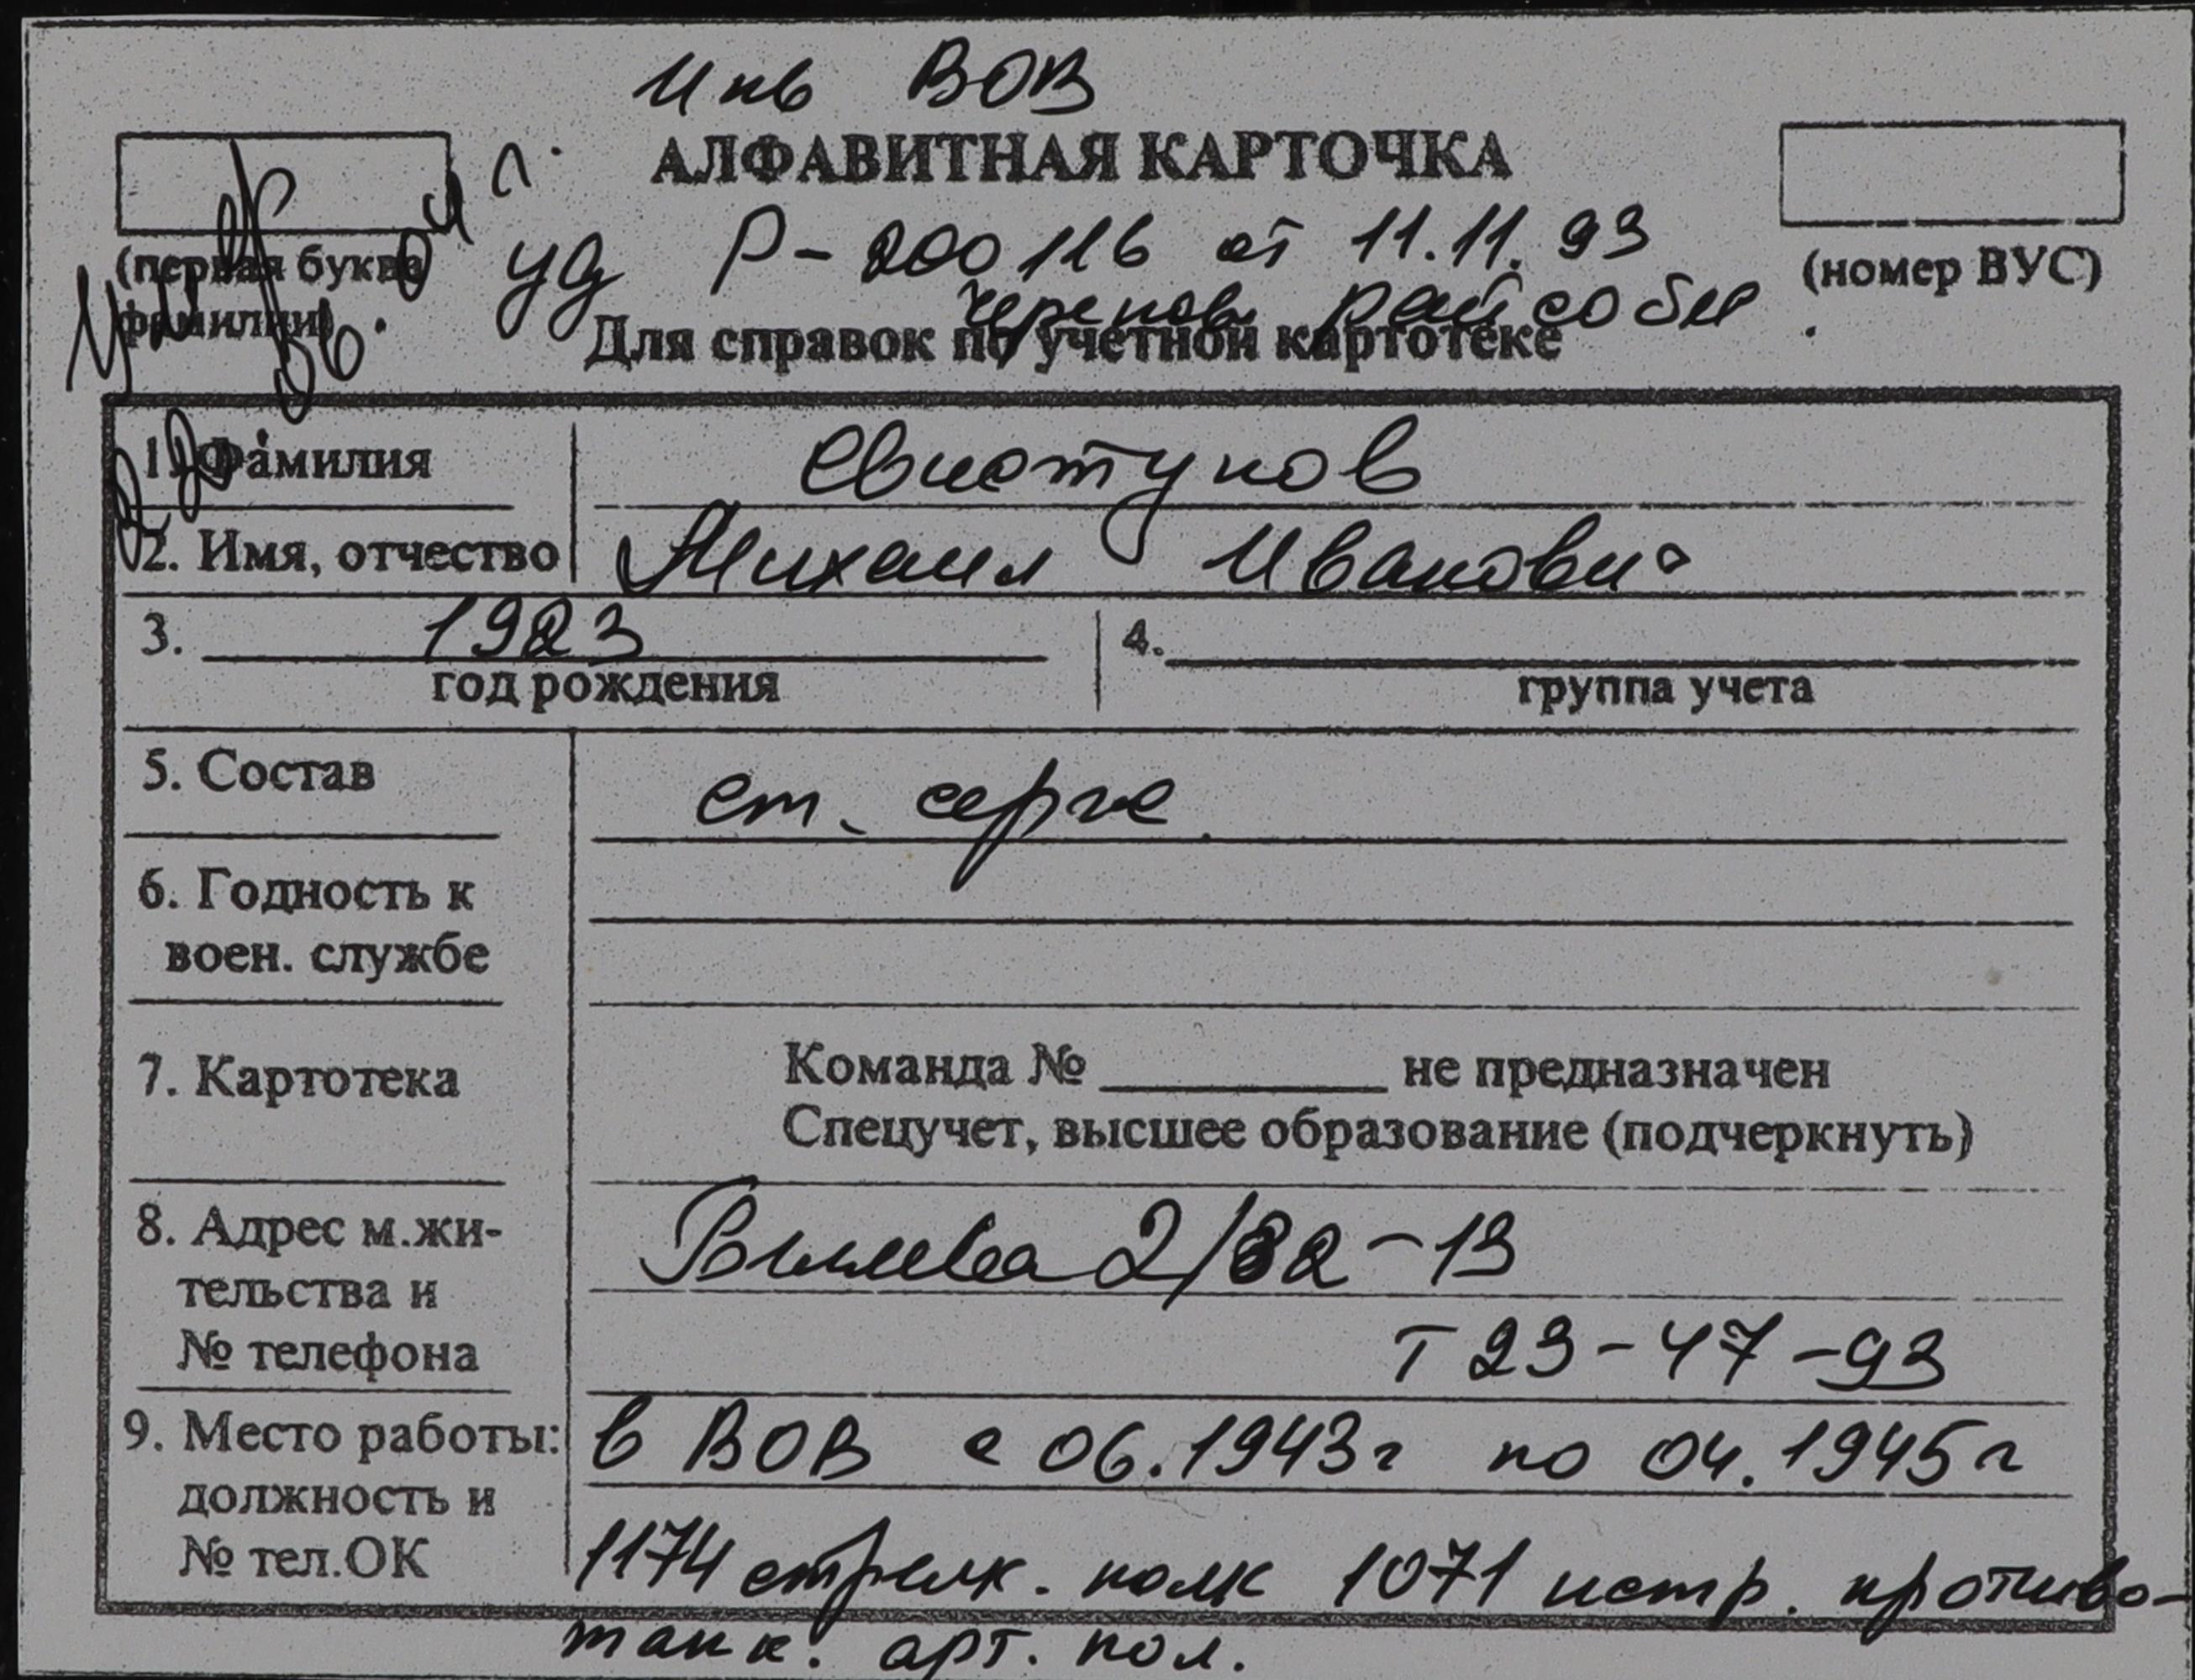 Инв ВОВ
АЛФАВИТНАЯ КАРТОЧКА
(первая буква фамилии)
уд Р-200116 от 11.11.93
черепов. райсобес.
(номер ВУС)
Для справок по учетной картотеке
1. Фамилия Свистунов
2. Имя, отчество Михаил Иванович
3. 1923 4.
год рождения группа учета
5. Состав ст. серж.
6. Годность к
воен. службе
7. Картотека Команда № ________ не предназначен
Спецучет, высшее образование (подчеркнуть)
8. Адрес м.жи- 2/82-13
тельства и
№ телефона Т 23-47-93
9. Место работы: в ВОВ с 06.1943г по 04.1945г
должность и
№ тел.ОК 1174 стрелк. полк 1071 истр. противо-
танк. арт. пол.